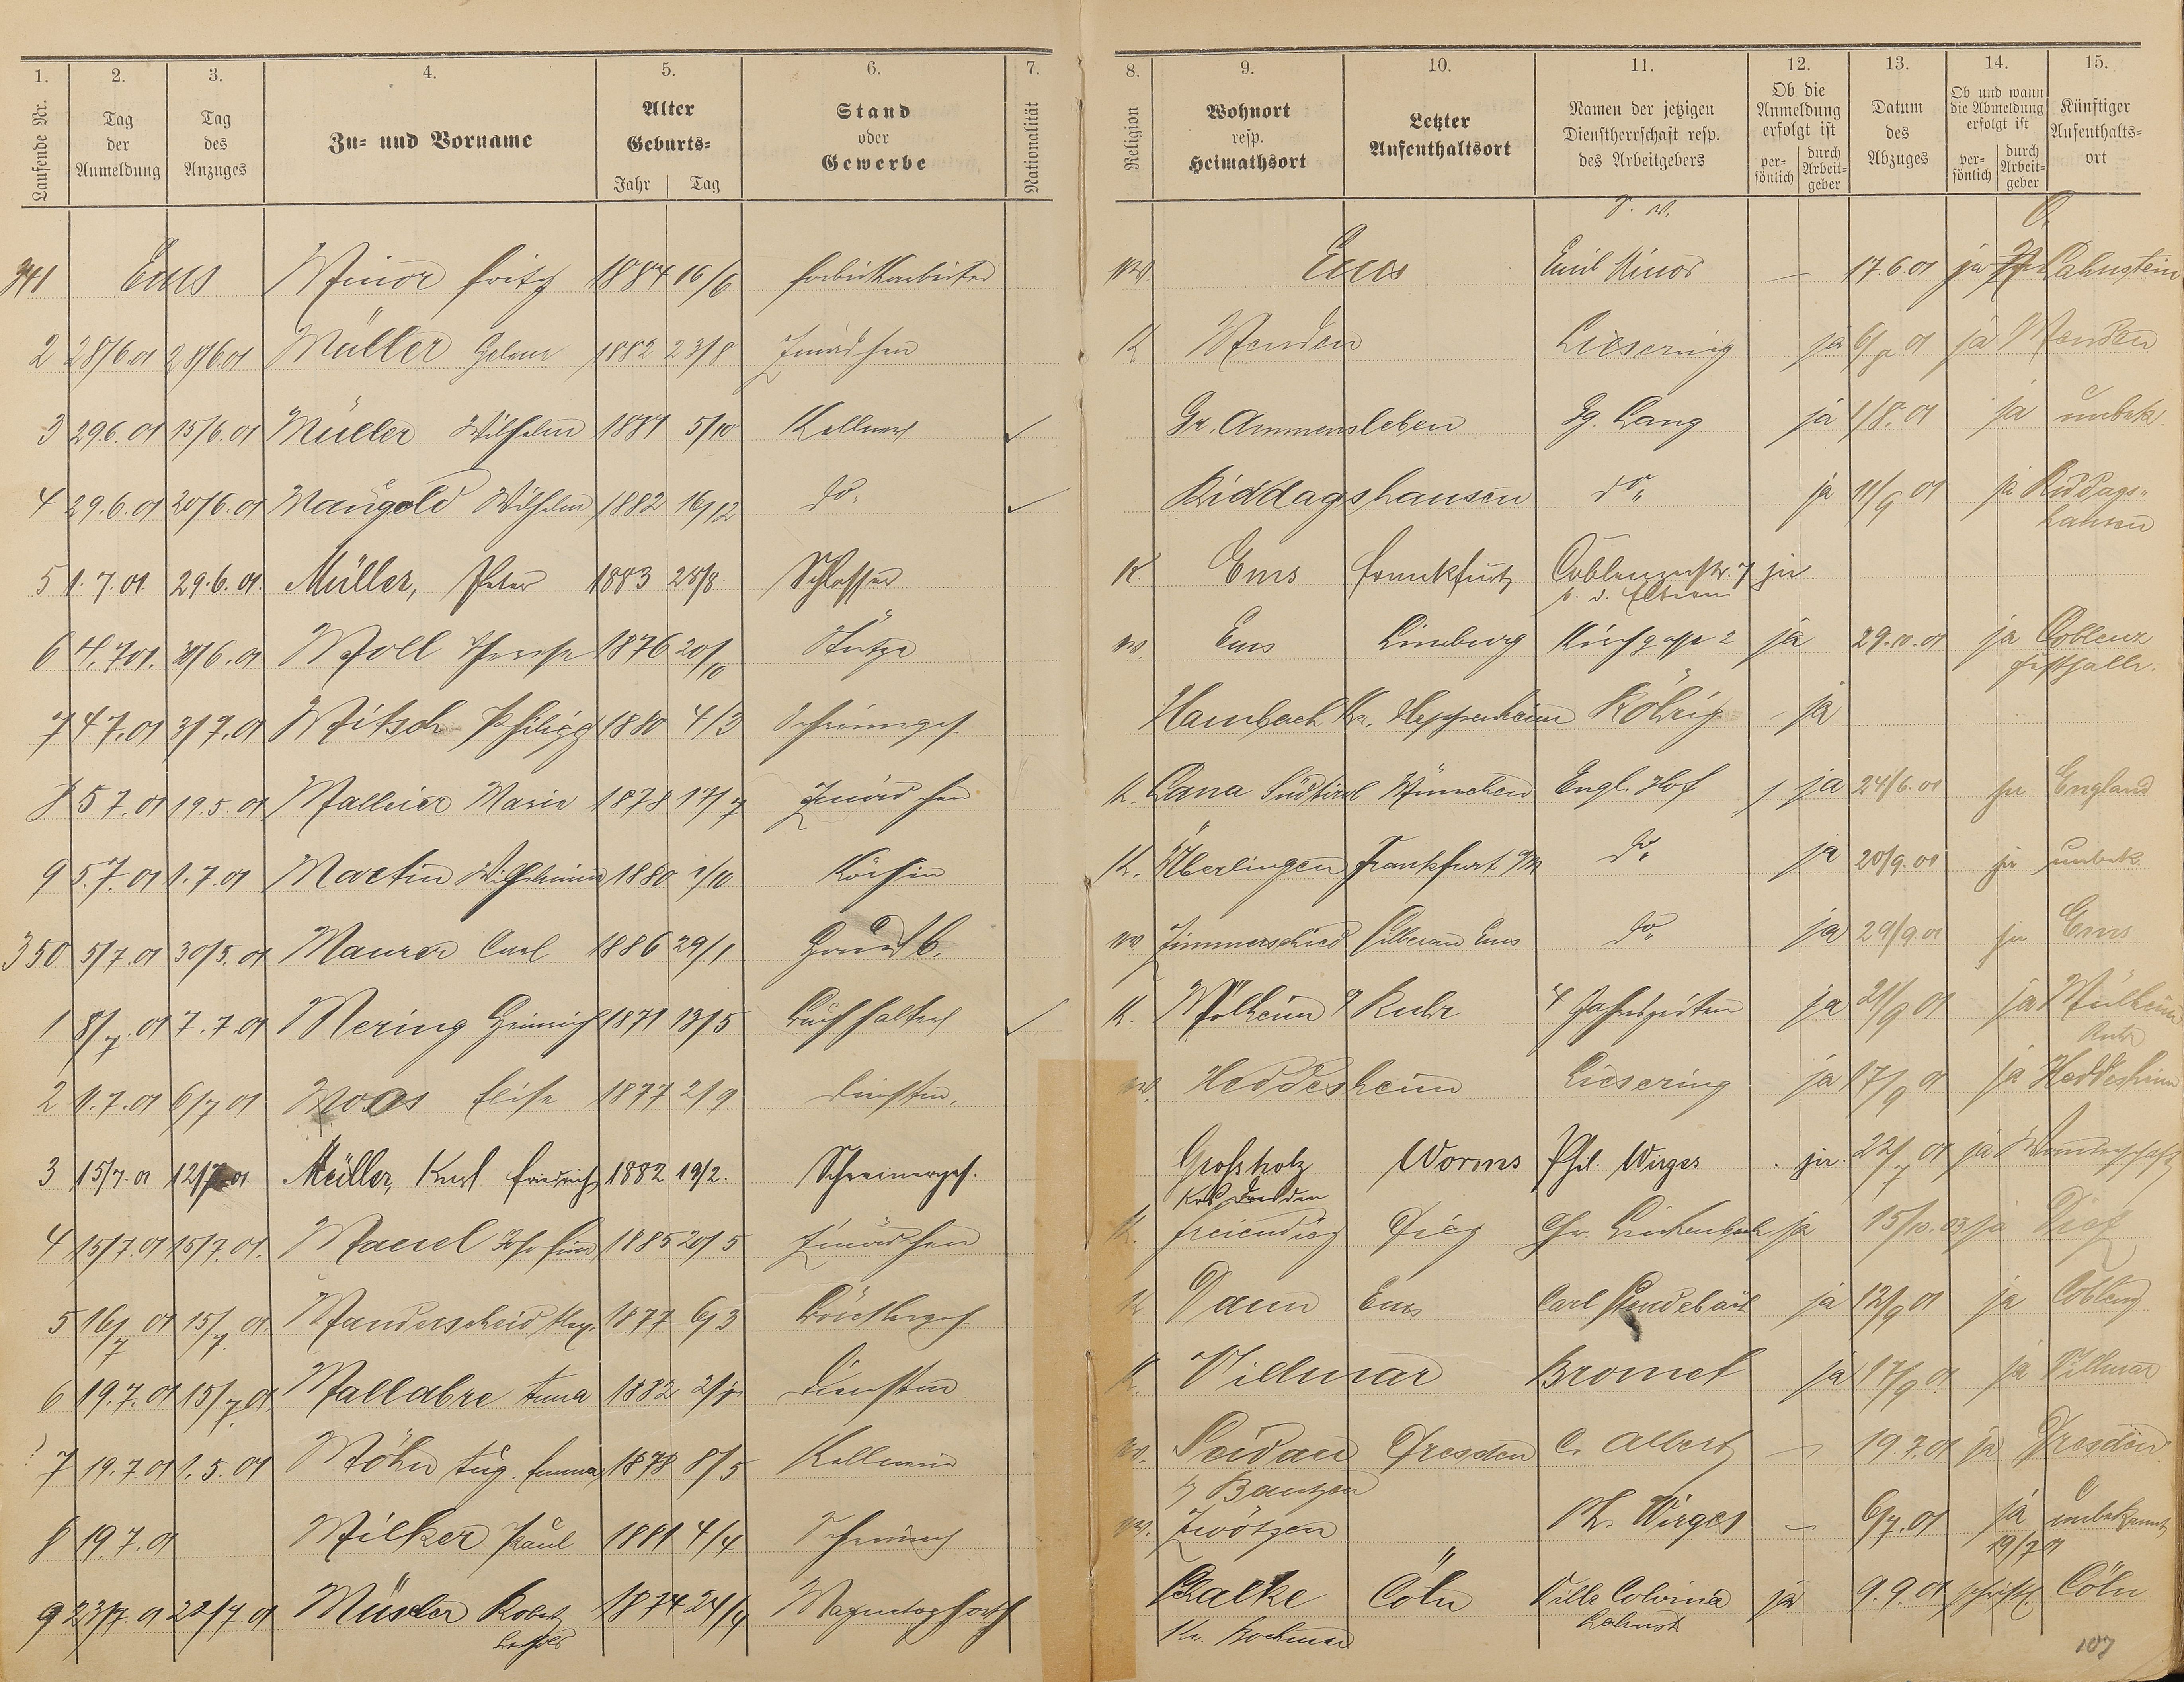 1. 2. 3. 4. 5. 6. 7. 8. 9. 10. 11. 12. 13. 14. 15.
Laufende Nr. Tag der Anmeldung Tag des Anzuges Zu- und Vorname Alter Geburts- Jahr Tag Stand oder Gewerbe Nationalität Religion Wohnort resp. Heimathsort Letzter Aufenthaltsort Namen der jetzigen Dienstherrschaft resp. des Arbeitgebers Ob die Anmeldung erfolgt ist per- sönlich durch Arbeit- geber Datum des Abzuges Ob und wann die Abmeldung erfolgt ist per- sönlich durch Arbeit- geber Künftiger Aufenthalts- ort
341 Ems Minor Fritz 1884 16/6 Fabrikarbeiter Ems Emil Minor — 17.6.01 ja Lahnstein
2 28/6.01 28/6.01 Müller 1882 23/8 Zmädchen K Menden Liesering ja 01 ja Menden
3 29.6.01 15/6.01 Müller Wilhelm 5/10 Kellner Gr. Ammensleben Gg. Lang ja 1/8.01 ja unbek.
4 29.6.01 20/6.01 Mangold Wilhelm 1882 16/12 do. Riddagshausen do. ja 11/9 01 ja Riddags-
hausen
5 1.7.01. 29.6.01. Müller, Peter 1883 28/8 Schlosser K. Ems Frankfurt Coblenzerstr. 7 ja
b. d. Eltern
6 4.7.01. 30/6.01 Moll 1876 20/10 Stütze Ems Limburg Kirchgasse 2 ja 29.10.01 ja Coblenz
Festhalle.
7 4 7.01 3/7.01 Mitsch Philipp 1880 4/3 Schreinerges. Hambach Kr. Heppenheim Röhrig - ja
8 5 7.01 19.5.01 Malleier Marie 1878 17/7 Zmädchen K. Lana Südtirol München Engl. Hof ja 24/6.01 ja England
9 5.7.01 1.7.01 Martin Wilhelmine 1880 1/10 Köchin K. Überlingen Frankfurt a/M do. ja 20/9.01 ja unbek.
350 5/7.01 30/5.01 Maurer Carl 1886 29/1 Hausb. Zimmerschied Silberau Ems do. ja 29/9.01 ja Ems
1 8/7.01 7.7.01 Mering Heinrich 1871 13/5 Buchhalter K. Mülheim a Ruhr 4 Jahrszeiten ja 21/9 01 ja Mülheim
Ruhr
2 1.7.01 6/7 01 Moos Elise 1877 2/9 Dienstm. Heddesheim Liesering ja 17/9 01 ja Heddesheim
3 15/7.01 12/7.01 Müller, Karl Friedrich 1882 19/2. Schreinerges. Großholz Worms Phil. Wirges ja. 22/7 01 ja Wanderschaft
Dresden
4 15/7.01 15/7.01. 1885 20/5 Zmädchen K. Freiendiez Diez ja 15/10.03 ja Diez
5 16/7 01 15/7.01. Manderscheid 1877 6/3 K Daun Ems Carl ja 12/9 01 ja Coblenz
6 19.7.01 15/7.01 Mallabre Anna 1882 Dienstm K. Villmar Bromet ja 17/9 01 ja Villmar
7 19.7 01 1.5.01 Möhn Aug. Emma 1878 8/5 Kellnerin Seidau Dresden C. Albert 19.7.01 ja Dresden
b/ Bautzen
8 19.7.01 Milker Paul 1881 4/4 Schreiner Zwötzen Ph. Wirges 6/7.01 ja unbekannt
19/7 01
9 23/7.01 22/7.01 Müsler Robert 1874 24/4 Magnetopath Schalke Cöln Villa ja 9.9.01 schriftl. Cöln
Berthold Kr. Bochum Lahnstr
107